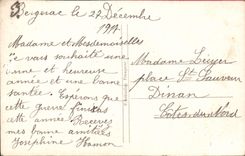 Bergerac le 29 Décembre
1917
Madame et Mesdemoiselle
Je vous souhaite une
bonne et heureuse
année et une bonne
santée. Esperons que
cette guerre finitas
cette année. Recevez
mes bonne amitiées
Joséphine Hamon
Madame
place St Sauveur
Dinan
Côtes-du-Nord